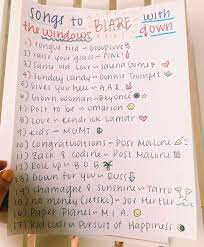 Songs to BLARE with
the windows down
1) Tongue tied ~ Grouplove
2) raise your glass ~ P!nk!
3) Same old Love ~ Selena Gomez
4) Sunday Candy ~ Donnie Trumpet
5) Gives you hell ~ A.A.R.
6) Grown woman ~ Beyonce
7) Post to be ~ omarion
8) Love ~ Kendrick Lamar
9) Kids ~ MGMT
10) Congratulations ~ Post Malone
11) Zack & codine ~ Post Malone
12) Roll up ~ B.O.B
13) Down for you ~ Russ
14) champagne & Sunshine ~ Tarro
15) no money (letski) ~ Joe Hurtur
16) Paper Planes ~ M.I.A.
17) Kid Cudi ~ Pursuit of Happiness